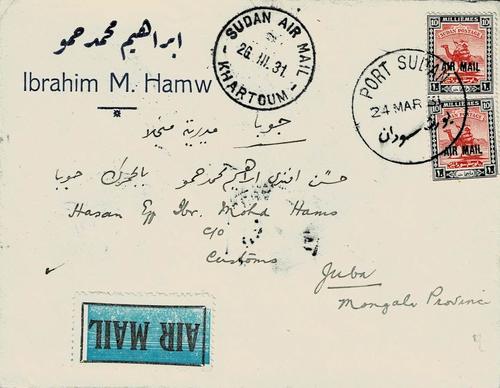 ابراهيم محمد حمو
Ibrahim M. Hamw
SUDAN AIR MAIL
26. III. 31
KHARTOUM
PORT SUDAN
24 MAR
بورت سودان
10 MILLIEMES 10
SUDAN POSTAGE
AIR MAIL
10 MILLIEMES 10
SUDAN POSTAGE
AIR MAIL
جوبا
مديرية منجلا
حسن افندي ابراهيم محمد حمو بالجمرك جوبا
Hasan Eff Ibr. Mohd Hamo
c/o
Customs
Juba
Mongalla Province
AIR MAIL